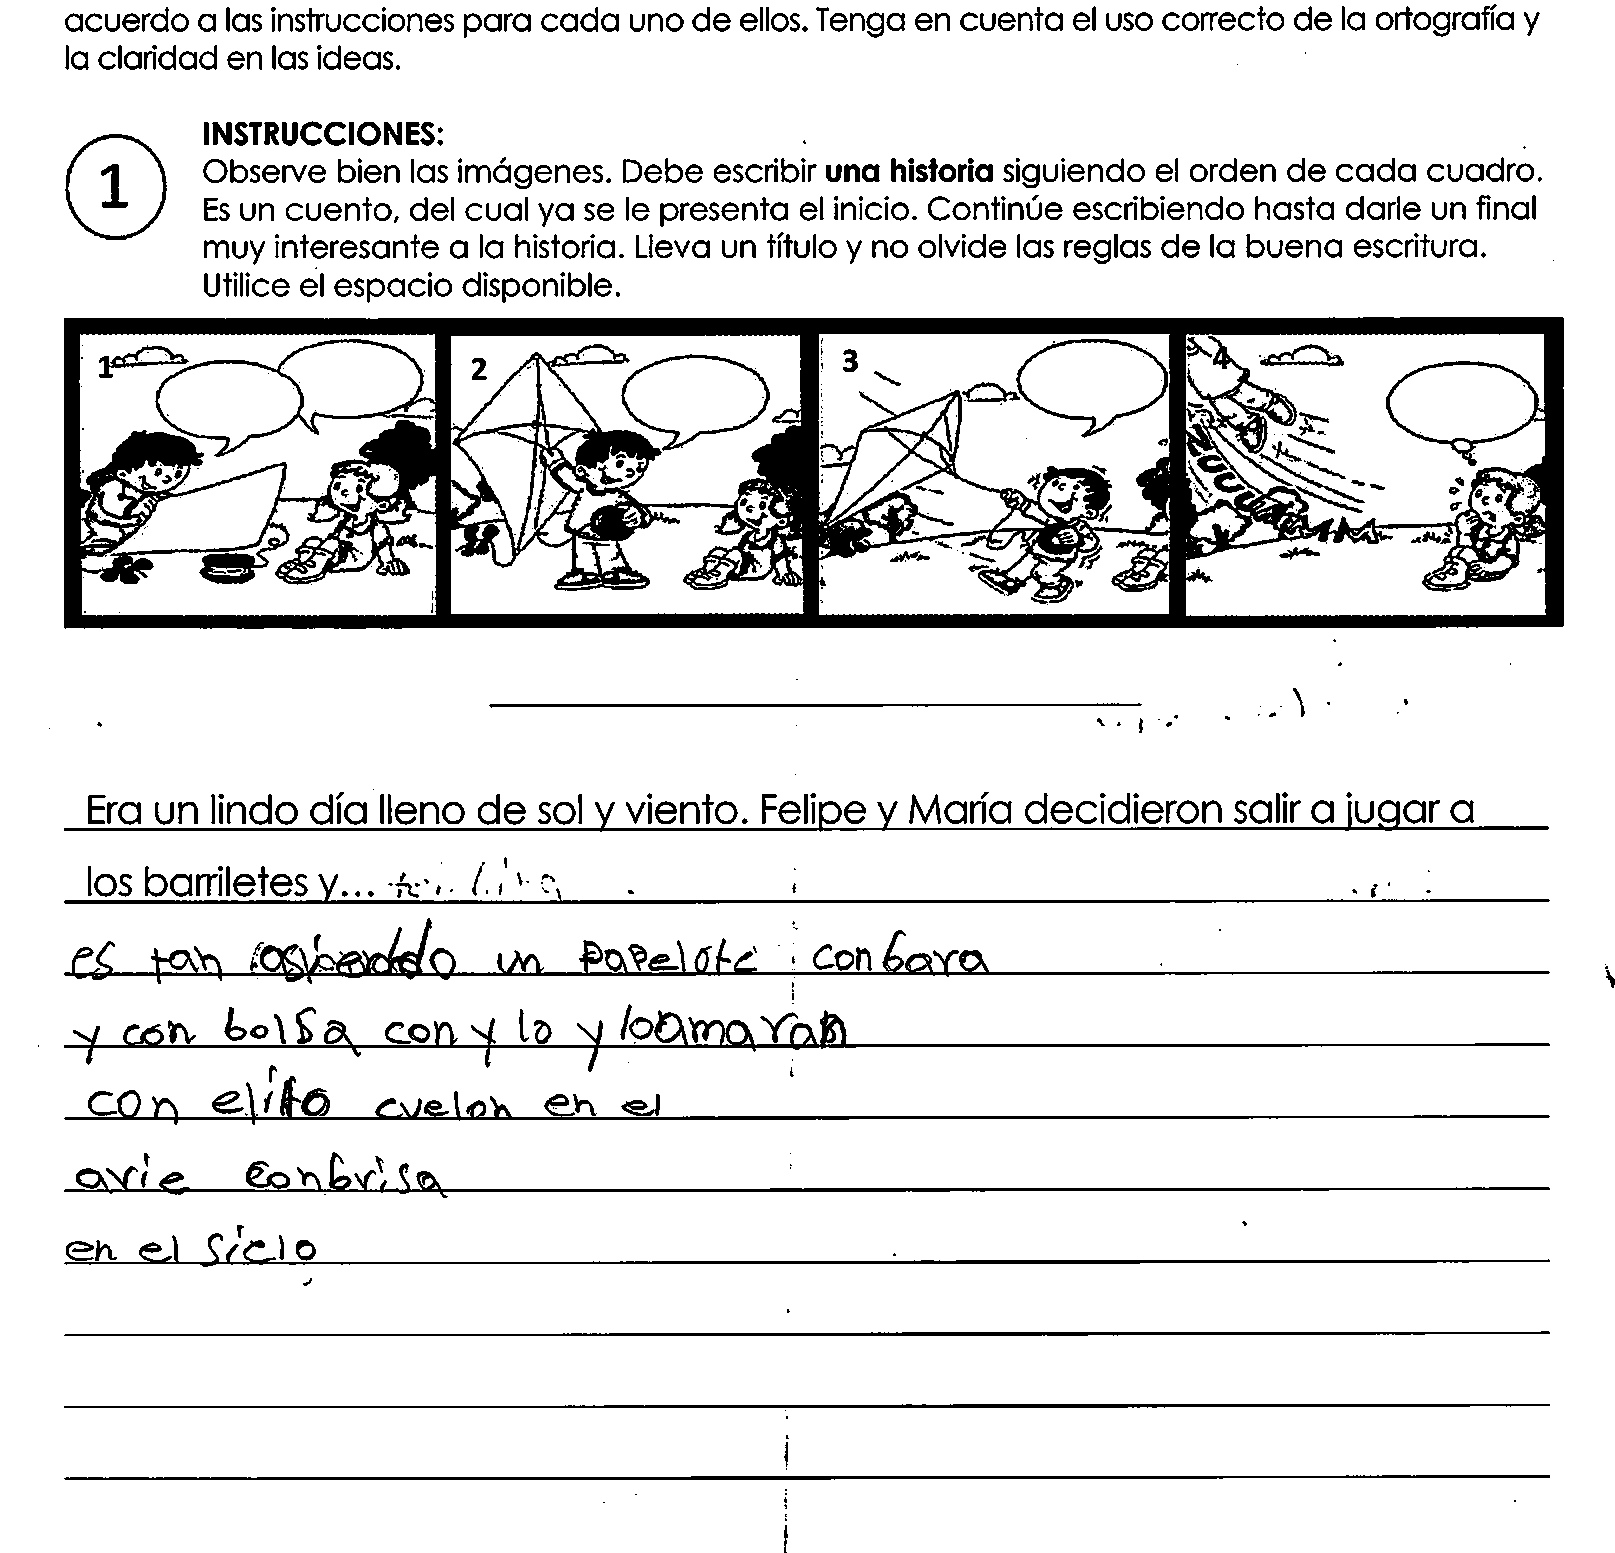 acuerdo a las instrucciones para cada uno de ellos. Tenga en cuenta el uso correcto de la ortografía y
la claridad en las ideas.
1
INSTRUCCIONES:
Observe bien las imágenes. Debe escribir una historia siguiendo el orden de cada cuadro.
Es un cuento, del cual ya se le presenta el inicio. Continúe escribiendo hasta darle un final
muy interesante a la historia. Lleva un título y no olvide las reglas de la buena escritura.
Utilice el espacio disponible.
1 2 3 4
Era un lindo día lleno de sol y viento. Felipe y María decidieron salir a jugar a
los barriletes y...
es tan un papelote con bara
y con bolsa con y lo y
con cuelon en el
arie conbrisa
en el siclo